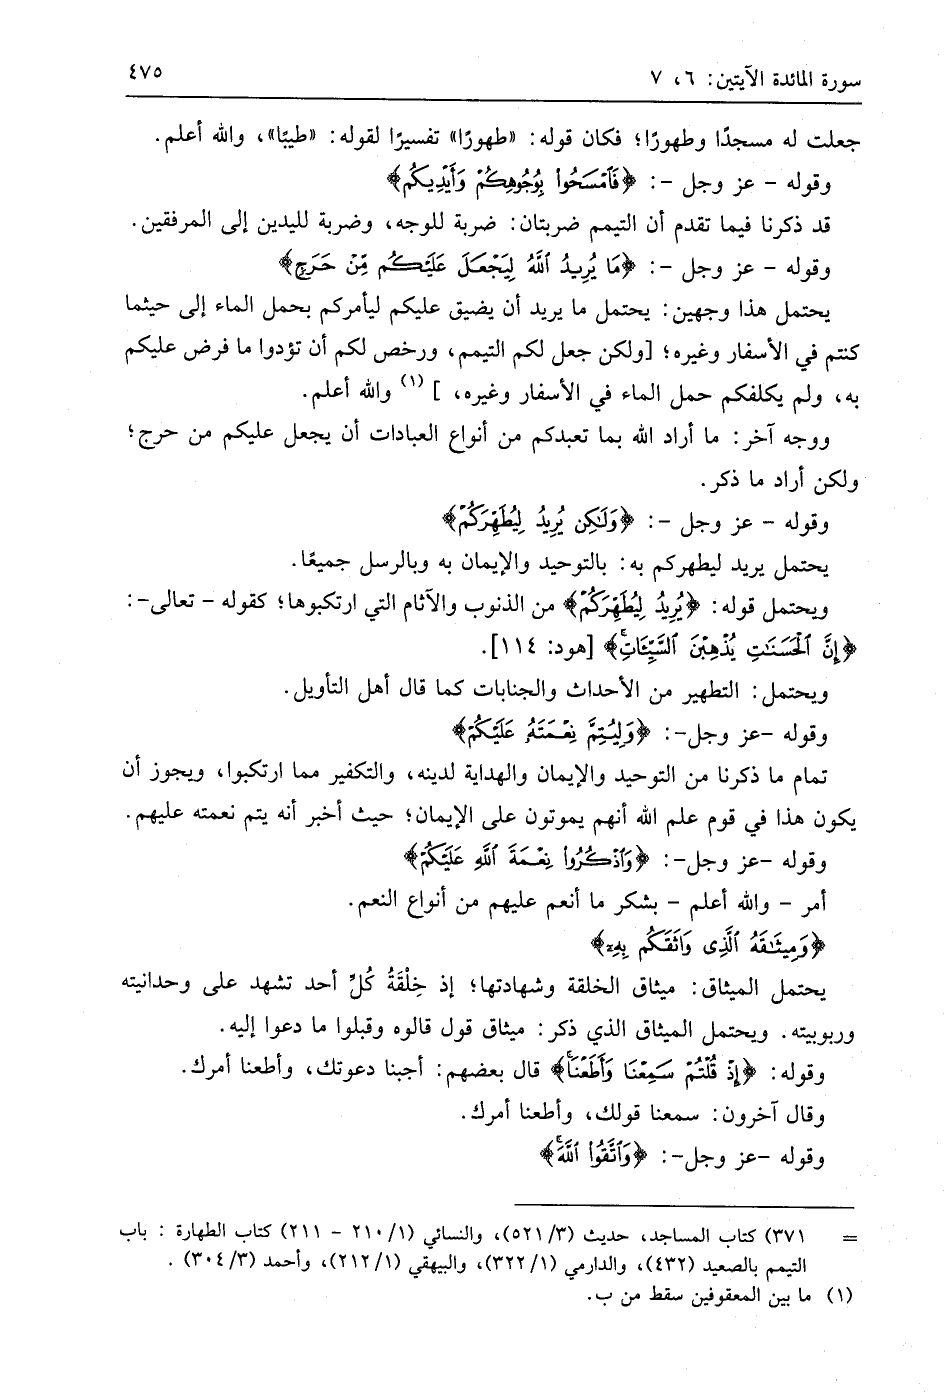 سورة المائدة الآيتين: ٦، ٧
٤٧٥
جعلت له مسجدًا وطهورًا؛ فكان قوله: «طهورًا» تفسيرًا لقوله: «طيبًا»، والله أعلم.
وقوله - عز وجل -: ﴿فَٱمۡسَحُوا۟ بِوُجُوهِكُمۡ وَأَيۡدِيكُم﴾
قد ذكرنا فيما تقدم أن التيمم ضربتان: ضربة للوجه، وضربة لليدين إلى المرفقين.
وقوله - عز وجل -: ﴿مَا يُرِيدُ ٱللَّهُ لِيَجۡعَلَ عَلَيۡكُم مِّنۡ حَرَجٍ﴾
يحتمل هذا وجهين: يحتمل ما يريد أن يضيق عليكم ليأمركم بحمل الماء إلى حيثما
كنتم في الأسفار وغيره؛ [ولكن جعل لكم التيمم، ورخص لكم أن تؤدوا ما فرض عليكم
به، ولم يكلفكم حمل الماء في الأسفار وغيره، ] (١) والله أعلم.
ووجه آخر: ما أراد الله بما تعبدكم من أنواع العبادات أن يجعل عليكم من حرج؛
ولكن أراد ما ذكر.
وقوله - عز وجل -: ﴿وَلَٰكِن يُرِيدُ لِيُطَهِّرَكُمۡ﴾
يحتمل يريد ليطهركم به: بالتوحيد والإيمان به وبالرسل جميعًا.
ويحتمل قوله: ﴿يُرِيدُ لِيُطَهِّرَكُمۡ﴾ من الذنوب والآثام التي ارتكبوها؛ كقوله - تعالى-:
﴿إِنَّ ٱلۡحَسَنَٰتِ يُذۡهِبۡنَ ٱلسَّيِّـَٔاتِۚ﴾ [هود: ١١٤].
ويحتمل: التطهير من الأحداث والجنابات كما قال أهل التأويل.
وقوله -عز وجل-: ﴿وَلِيُتِمَّ نِعۡمَتَهُۥ عَلَيۡكُمۡ﴾
تمام ما ذكرنا من التوحيد والإيمان والهداية لدينه، والتكفير مما ارتكبوا، ويجوز أن
يكون هذا في قوم علم الله أنهم يموتون على الإيمان؛ حيث أخبر أنه يتم نعمته عليهم.
وقوله -عز وجل-: ﴿وَٱذۡكُرُوا۟ نِعۡمَةَ ٱللَّهِ عَلَيۡكُمۡ﴾
أمر - والله أعلم - بشكر ما أنعم عليهم من أنواع النعم.
﴿وَمِيثَٰقَهُ ٱلَّذِى وَاثَقَكُم بِهِۦٓ﴾
يحتمل الميثاق: ميثاق الخلقة وشهادتها؛ إذ خِلْقَةُ كُلِّ أحد تشهد على وحدانيته
وربوبيته. ويحتمل الميثاق الذي ذكر: ميثاق قول قالوه وقبلوا ما دعوا إليه.
وقوله: ﴿إِذۡ قُلۡتُمۡ سَمِعۡنَا وَأَطَعۡنَاۖ﴾ قال بعضهم: أجبنا دعوتك، وأطعنا أمرك.
وقال آخرون: سمعنا قولك، وأطعنا أمرك.
وقوله -عز وجل-: ﴿وَٱتَّقُوا۟ ٱللَّهَۚ﴾
= ٣٧١) كتاب المساجد، حديث (٣/ ٥٢١)، والنسائي (١/ ٢١٠ - ٢١١) كتاب الطهارة : باب
التيمم بالصعيد (٤٣٢)، والدارمي (١/ ٣٢٢)، والبيهقي (١/ ٢١٢)، وأحمد (٣/ ٣٠٤) .
(١) ما بين المعقوفين سقط من ب.